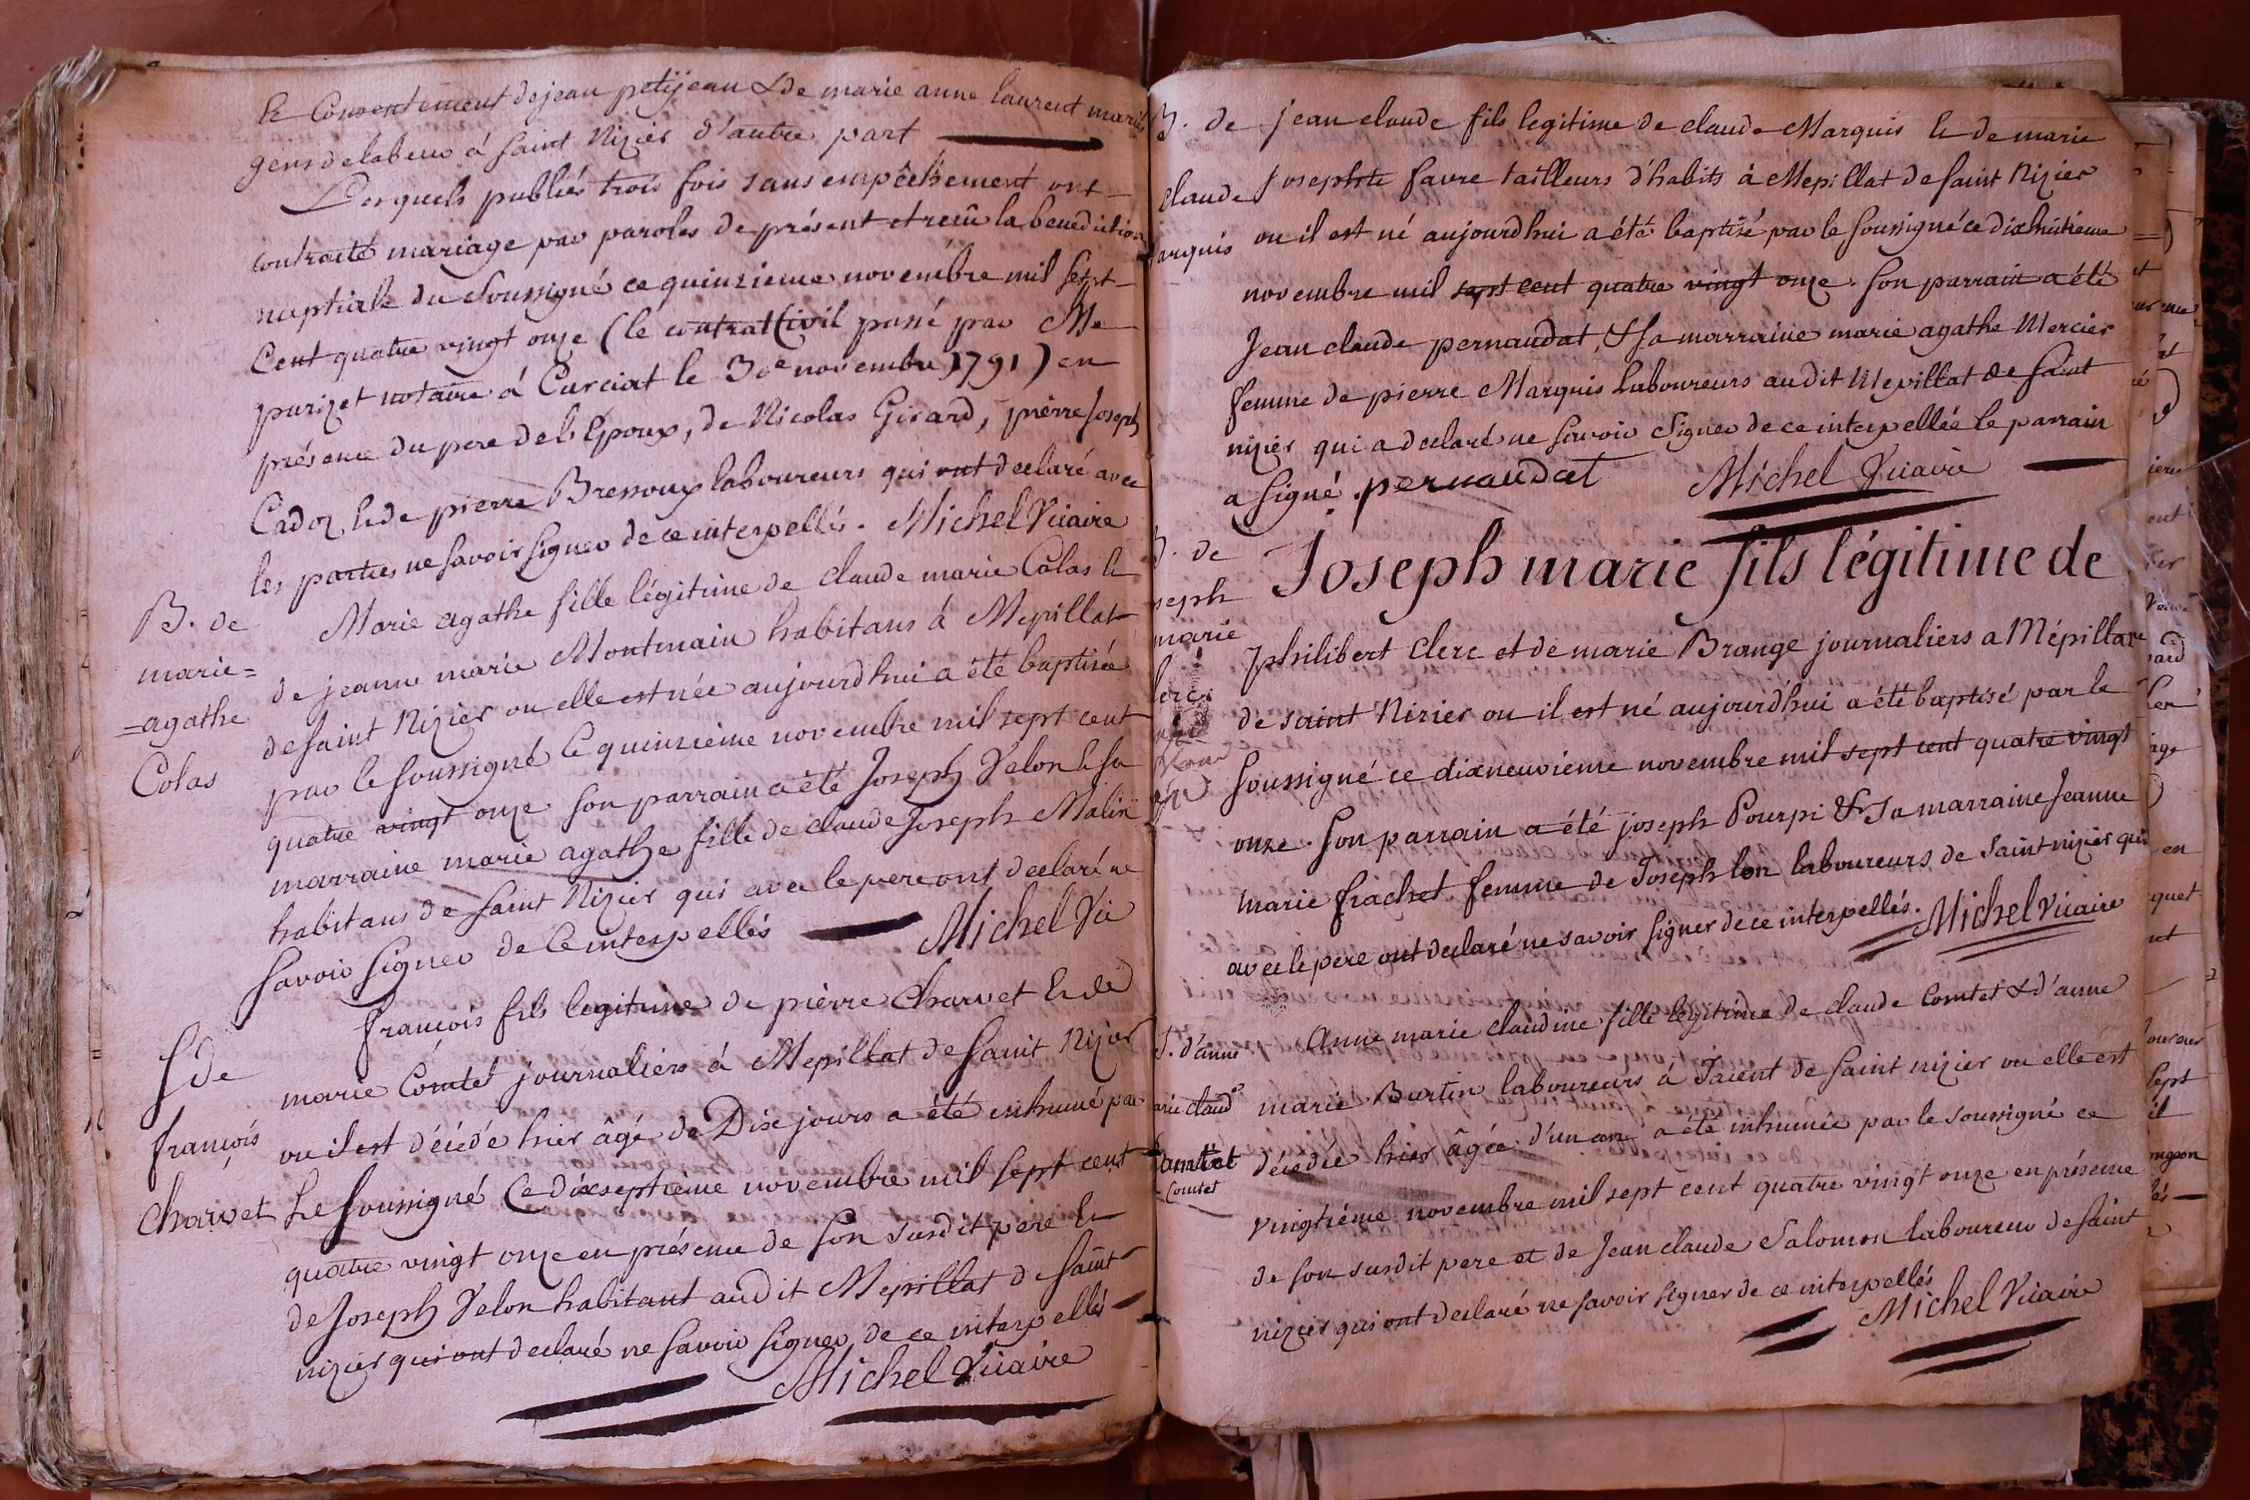 & Consentement de jean petijean & de marie anne laurent mariés
gens de labeur á saint Nizier d'autre part
Lesquels publiés trois fois sans empêchement ont
contracté mariage par paroles de présent et reçû la benediction
nuptiale du soussigné ce quinzieme novembre mil sept
Cent quatre vingt onze (le contrat Civil passé par Me
purizet notaire á Curciat le 3 novembre 1791) en
présence du pere de l'Epoux, de Nicolas Girard, pierre Joseph
Cadoz & de pierre Bressoux laboureurs qui ont declaré avec
les parties ne savoir signer de ce interpellés. Michel Vicaire
B. de
marie=
=agathe
Colas
Marie agathe fille légitime de claude marie Colas &
de jeanne marie Montmain habitans á Mepillat
de saint Nizier ou elle est née aujourd'hui a été baptisée
par le soussigné ce quinzieme novembre mil sept cent
quatre vingt onze son parrain a été Joseph Velon & sa
marraine marie agathe fille de claude Joseph Malin
habitans de saint Nizier qui avec le pere ont declaré ne
savoir signer de ce interpellés Michel Vic
S de
françois
Charvet
françois fils legitime de pierre Charvet & de
marie Comtet journaliers á Mepillat de saint Nizier
ou il est décédé hier âgé de Dix jours a été inhumé par
Le soussigné ce dixseptieme novembre mil sept cent
quatre vingt onze en présence de son susdit pere &
de Joseph Velon habitant audit Mepillat d saint
nizier qui ont declaré ne savoir signer de ce interpellés
Michel Vicaire
B. de
claude
arquis
jean claude fils legitime de claude Marquis & de marie
Josephte favre tailleurs d'habits á Mepillat de saint Nizier
ou il est né aujourdhui a été baptisé par le soussigné ce dixhuitieme
novembre mil sept cent quatre vingt onze. son parrain a été
Jean claude pernaudat, & sa marraine marie agathe Mercier
femme de pierre Marquis laboureurs audit Mepillat de saint
nizier qui a declaré ne savoir signer de ce interpellée le parrain
a signé. pernaudat Michel Vicaire
. de
seph
marie
lerc
Joseph marie fils légitime de
philibert Clerc et de marie Brange journaliers a Mépillat
de saint Nizier ou il est né aujourd'hui a été baptisé par le
soussigné ce dixneuvieme novembre mil sept cent quatre vingt
onze. son parrain a été joseph Pourpi & sa marraine Jeanne
marie frachet femme de Joseph lon laboureurs de saint nizier qui
avec le pere ont declaré ne savoir signer de ce interpellés. Michel Vicaire
S. d'anne
arie claude
Comtet
Anne marie claudine fille légitime de claude Comtet & d'anne
marie Burtin laboureurs á de saint nizier ou elle est
décédée hier âgée d'un an a été inhumée par le soussigné ce
vingtiéme novembre mil sept cent quatre vingt onze en présence
de son susdit pere et de Jean claude Salomon laboureur de saint
nizier qui ont declaré ne savoir signer de ce interpellés
Michel Vicaire